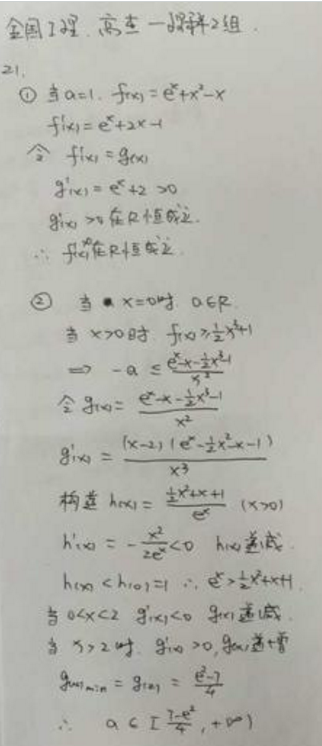 全国I理. 高杰一课群2组.
21.
① 当a=1. f(x)=e^x+x²-x
f'(x)=e^x+2x-1
令 f'(x)=g(x)
g'(x)=e^x+2>0
g'(x)>0在R恒成立.
∴ f'(x) 在R恒成立.
② 当 x=0时 a∈R.
当 x>0时 f(x)≥½x³+1
⇒ -a ≤ (e^x-x-½x³-1)/x²
令 g(x)= (e^x-x-½x³-1)/x²
g'(x)= (x-2)(e^x-½x²-x-1)/x³
构造 h(x)= (½x²+x+1)/e^x (x>0)
h'(x)= -x²/2e^x<0 h(x)递减.
h(x)<h(0)=1 ∴ e^x>½x²+x+1
当 0<x<2 g'(x)<0 g(x)递减.
当 x>2时 g'(x)>0, g(x)递增
g(x)min=g(2)= (e²-7)/4
∴ a∈[(7-e²)/4, +∞)